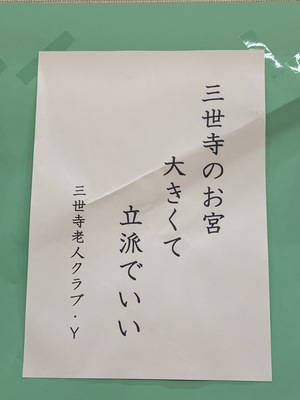 三世寺のお宮
大きくて
立派でいい
三世寺老人クラブ・Y